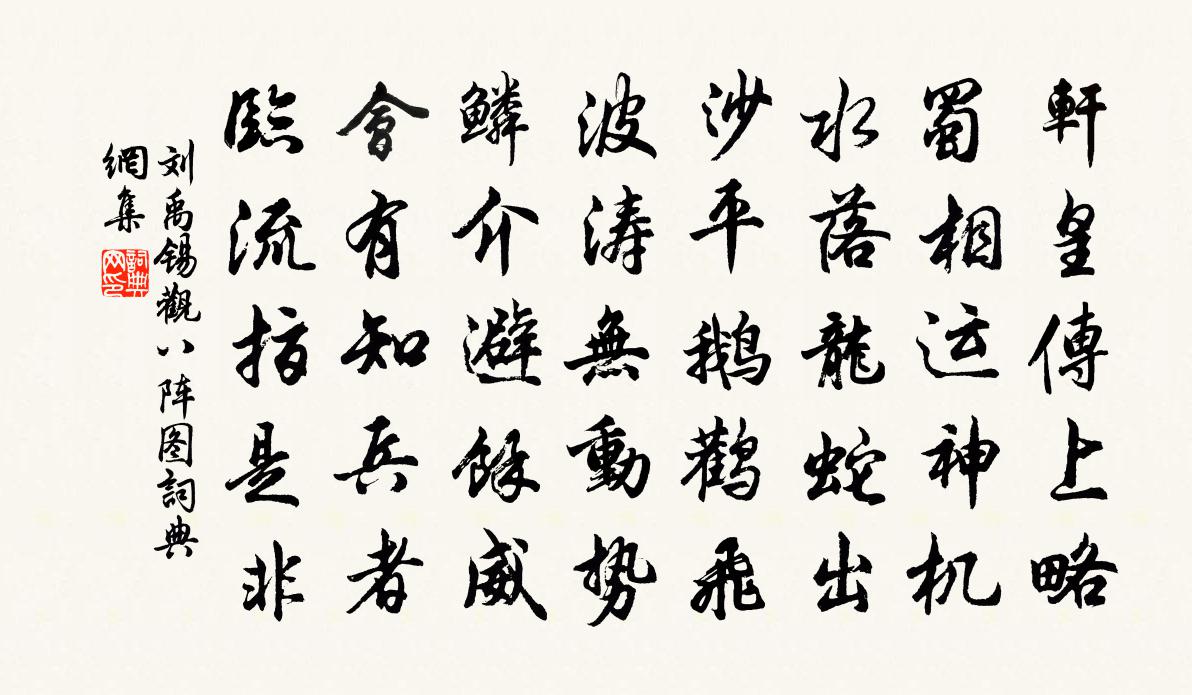 軒皇傳上略
蜀相运神机
水落龍蛇出
沙平鹅鹳飛
波涛無動势
鱗介避餘威
會有知兵者
臨流指是非
刘禹锡觀八阵图詞典
網集
詞典网印